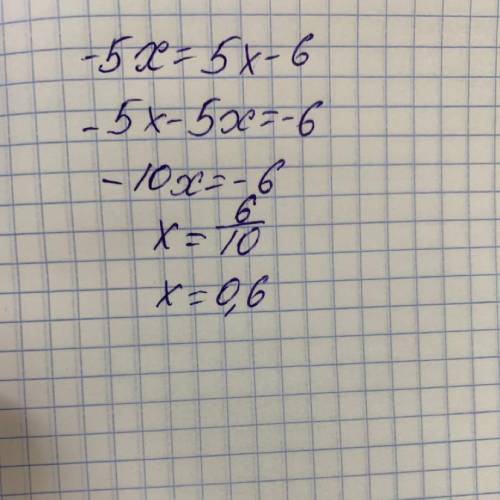 -5x=5x-6
-5x-5x=-6
-10x=-6
x=6/10
x=0,6